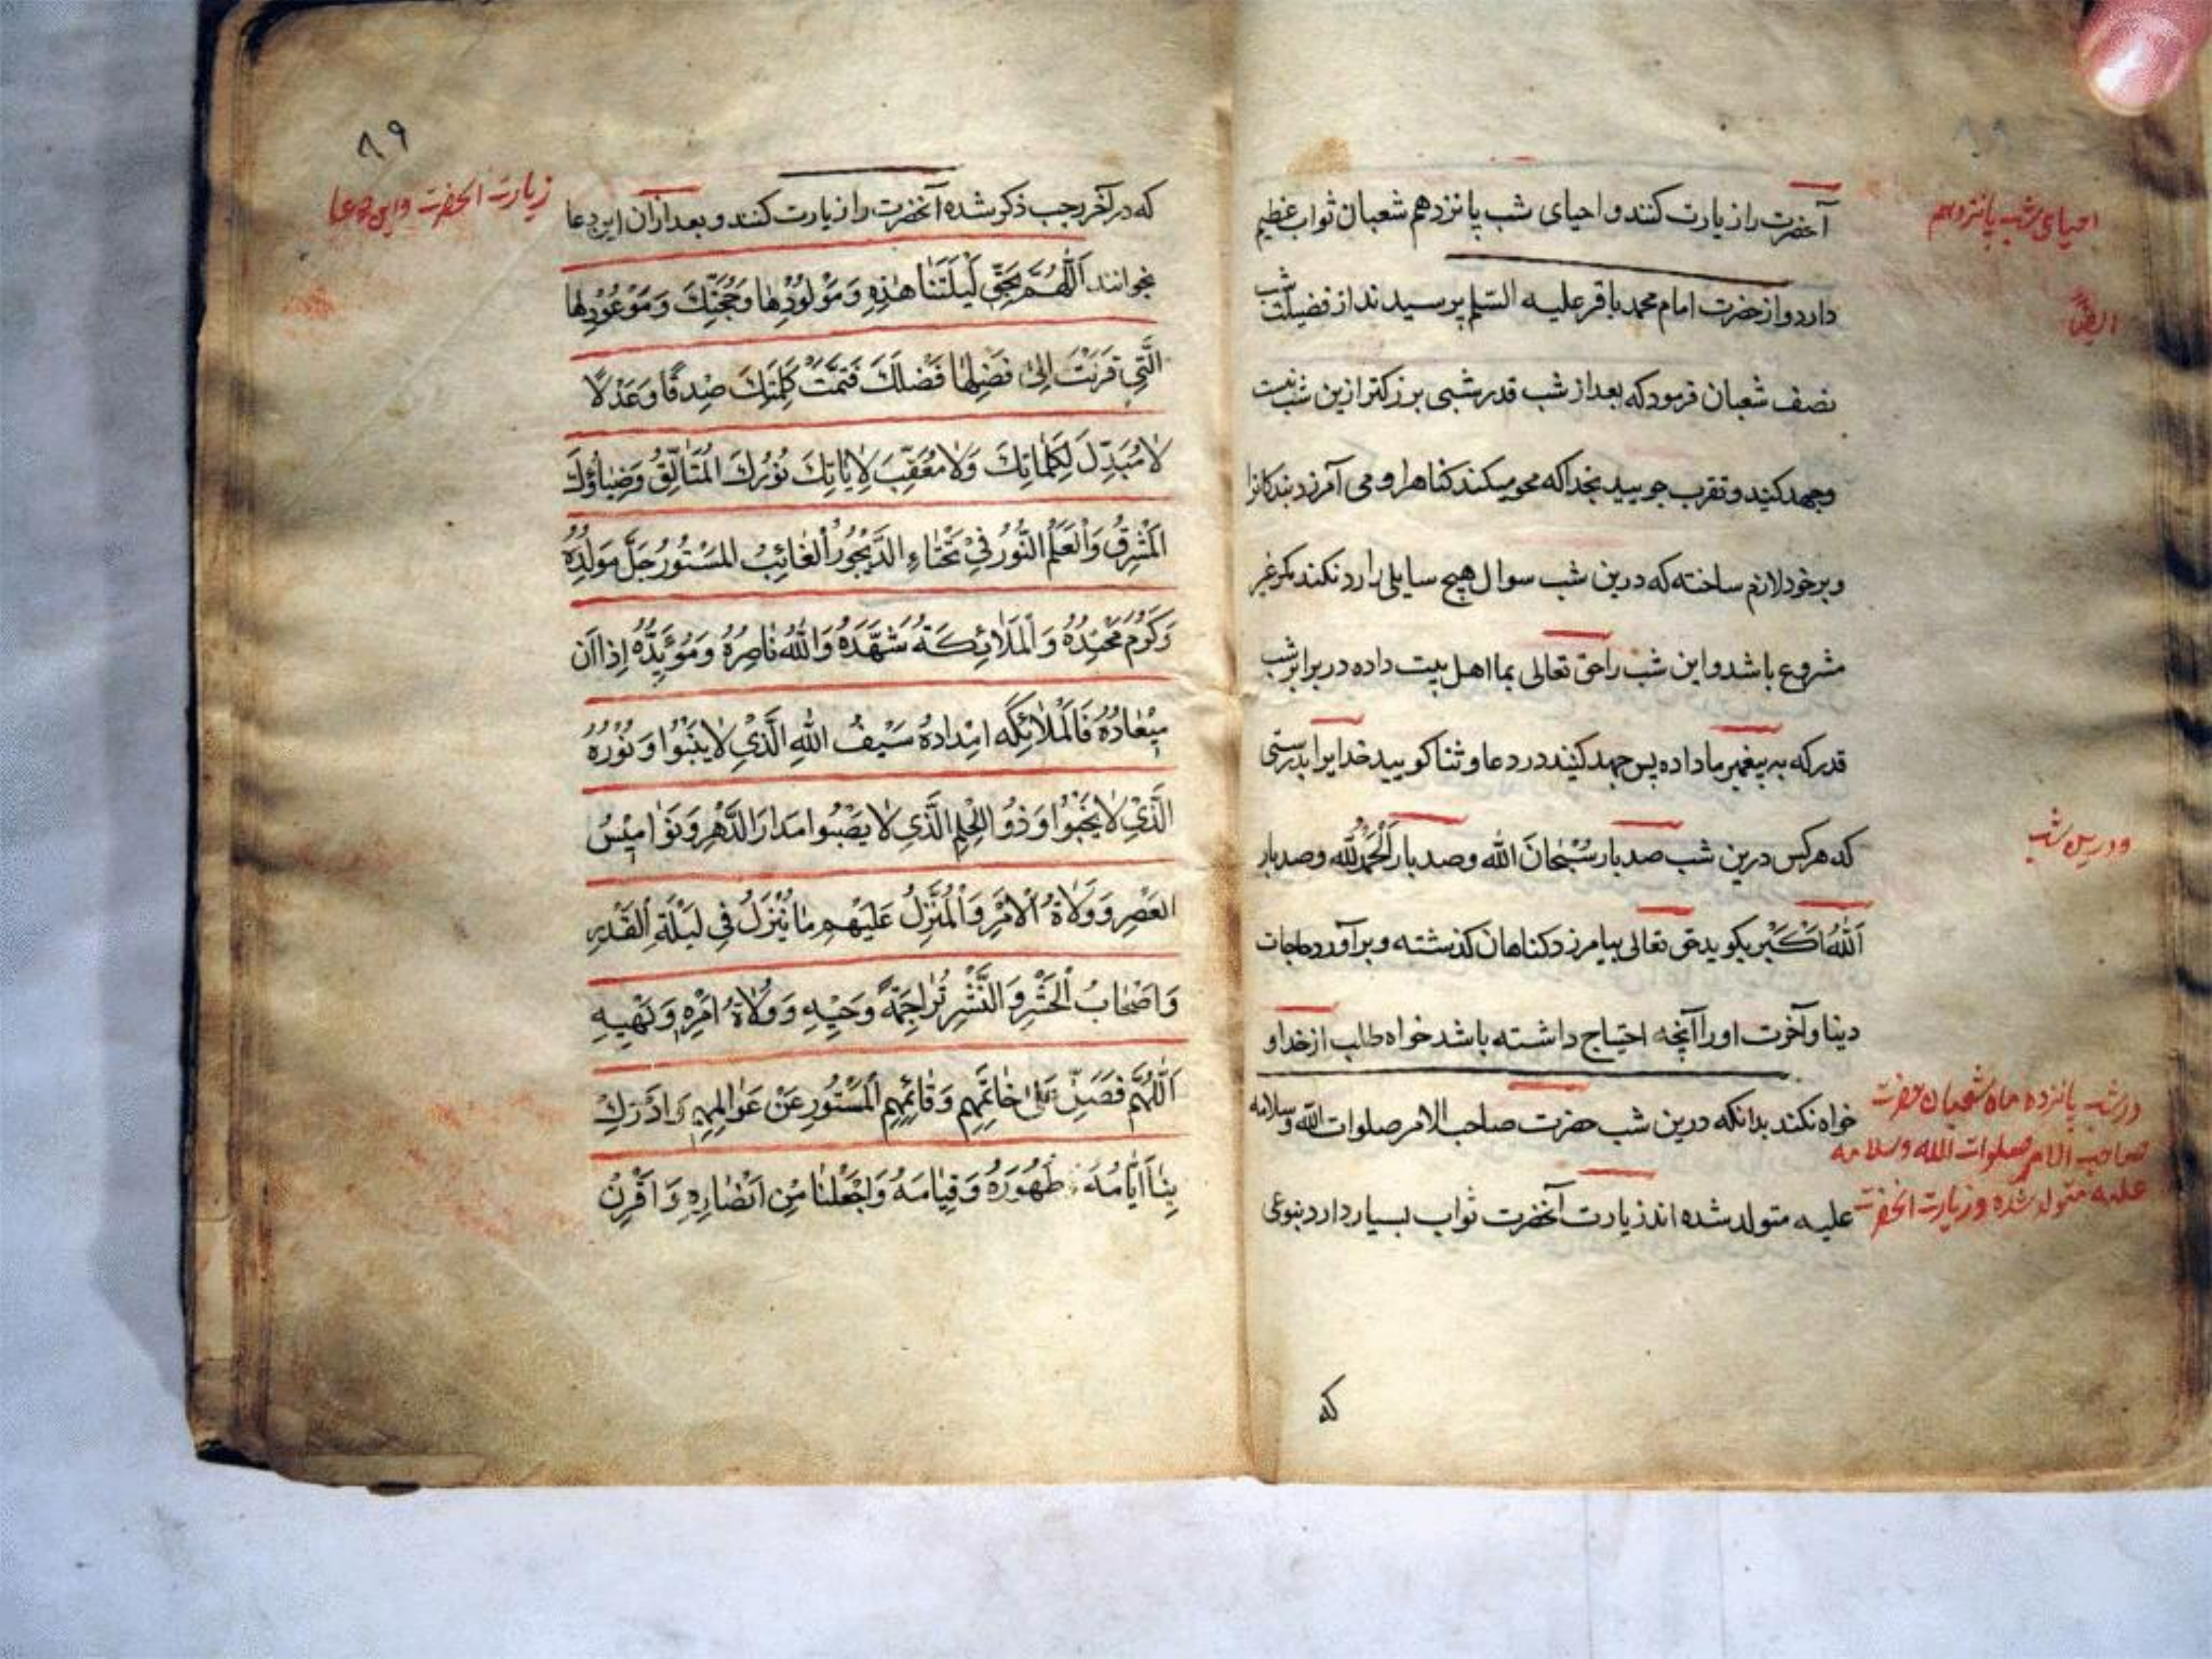 احیای شب پانزدهم
آنحضرت را زیارت کنند و احیای شب پانزدهم شعبان ثواب عظیم
ایضاً
دارد و از حضرت امام محمد باقر علیه السّلم پرسیدند از فضیلت شب
نصف شعبان فرمود که بعد از شب قدر شبی بزرکتر ازین شب نیست
وجهد کنید و تقرب جویید بخدا که محو میکند کناهرا و می آمرزد بندکانرا
و بر خود لازم ساخته که درین شب سوال هیچ سایلی را رد نکند مکر غیر
مشروع باشد و این شب را حق تعالی بما اهل بیت داده در برابر شب
قدر که به پیغمبر ما داده پس جهد کنید در دعا و ثنا کویید خدایرا بدرستی
و درین شب
که هر کس درین شب صد بار سُبْحَانَ الله وصد بار اَلْحَمْدُلِلّٰه وصد بار
اَللّٰهُ اَكْبَر بکوید حق تعالی بیامرزد کناهان کذشته و برآورد حاجات
دینا وآخرت او را آنچه احتیاج داشته باشد خواه طلب از خدا و
خواه نکند بدانکه درین شب حضرت صاحب الامر صلوات اللّه وسلامه
علیه متولد شده اند زیارت آنحضرت ثواب بسیار دارد بنوعی
در شب پانزده ماه شعبان حضرت
صاحب الامر صلوات الله وسلامه
علیه متولد شده و زیارت انحضرت
که
۸۹
زیارت انحضرت و این دعا
که در آخر رجب ذکر شده آنحضرت را زیارت کنند و بعد از آن این دعا
بخوانند اَللّٰهُمَّ بِحَقِّ لَيْلَتَنَا هٰذِهِ وَمَوْلُودِهٰا وَحُجَّتِكَ وَمَوْعُوْدِهٰا
الَّتِي قَرَنْتَ اِلىٰ فَضْلِهٰا فَضْلَكَ فَتَمَّتْ كَلِمَتِكَ صِدْقًا وَعَدْلًا
لٰا مُبَدِّلَ لِكَلِمٰاتِكَ وَلٰا مُعَقِّبَ لِاٰيٰاتِكَ نُوْرُكَ الْمُتَاَلِّقُ وَضِيٰاؤُكَ
الْمُشْرِقُ وَالْعَلَمُ النُّوْرُ فِيْ طَخْيٰاءِ الدَّيْجُوْرُ الْغٰائِبُ المَسْتُوْرُ جَلَّ مَوْلِدُهُ
وَكَرُمَ مَحْتِدُهُ وَالْمَلٰائِكَةُ شَهَّدَهُ وَاللّٰهُ نٰاصِرُهُ وَمُؤَيِّدُهُ اِذٰا اٰنَ
مِيْعٰادُهُ فَالْمَلٰائِكَه اَمْدٰادُهُ سَيْفُ اللّٰهِ الَّذِيْ لٰا يَنْبُوْا وَنُوْرُهُ
الَّذِيْ لٰا يَخْبُوْا وَذُو الْحِلْمِ الَّذِيْ لٰا يَصْبُوا مَدٰارَ الدَّهْرِ وَنَوٰامِيْسُ
العَصْرِ وَوَلٰاةُ الْاَمْرِ وَالْمُنَزَّلُ عَلَيْهِمِ مٰا يُنْزَلُ فِي لَيْلَةِ الْقَدْرِ
وَاَصْحٰابُ الْحَشْرِ وَالنَّشْرِ تَرٰاجِمَةُ وَحْيِهِ وَوُلٰاةُ اَمْرِهِ وَنَهْيِهِ
اَللّٰهُمَّ فَصَلِّ عَلىٰ خٰاتِمَهِمِ وَقٰائِمِهِمِ الْمَسْتُوْرِ عَنْ عَوٰالِمِهِمِ وَادْرَكْ
بِنٰا اَيّٰامَهُ ظُهُوْرَهُ وَقِيٰامَهُ وَاجْعَلْنٰا مِنْ اَنْصٰارِهِ وَاقْرِنْ